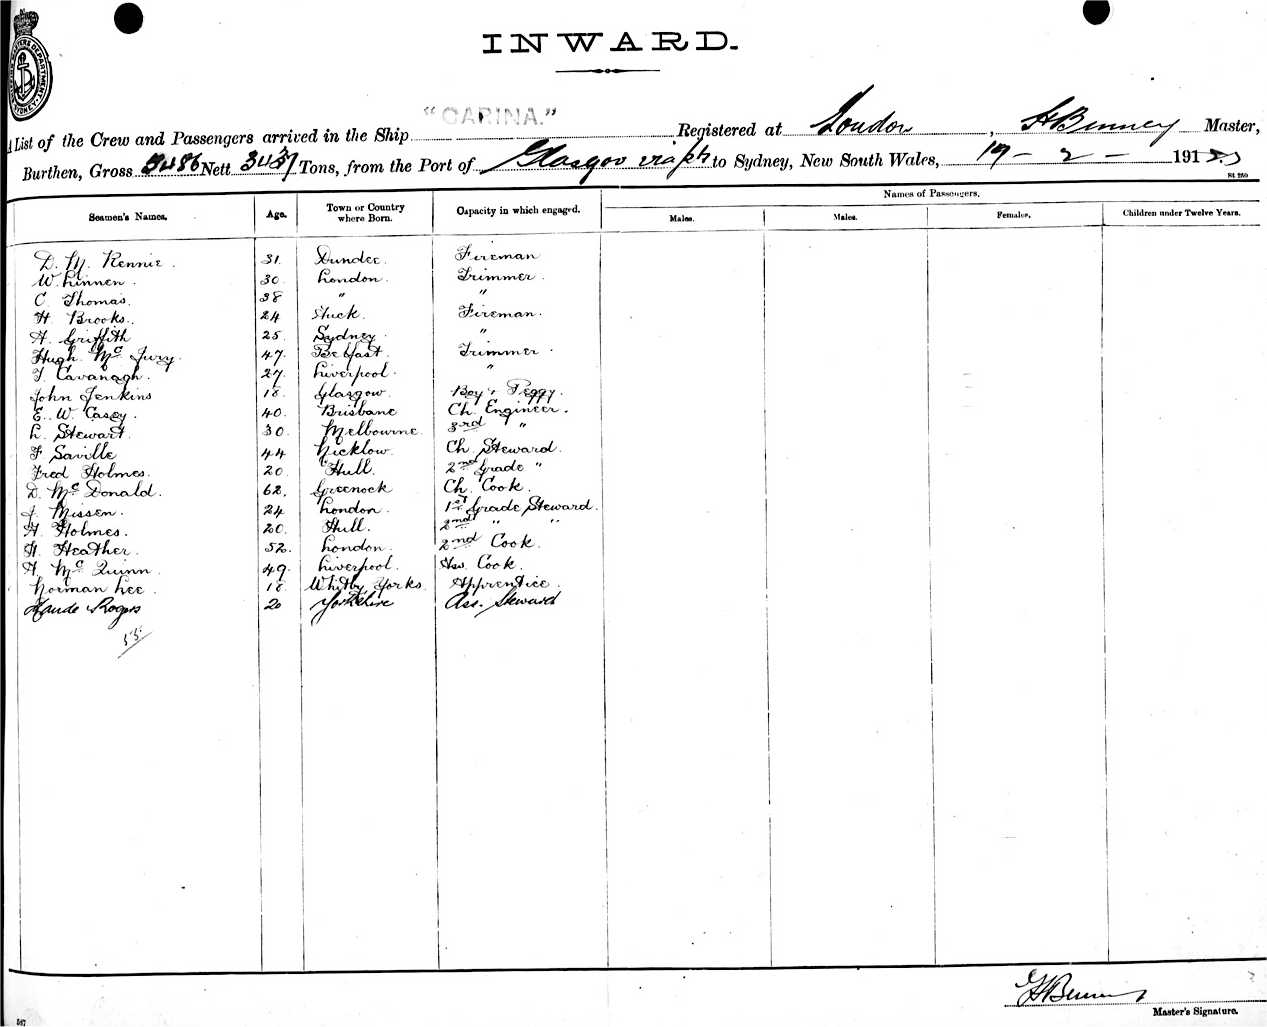 INWARD.
"CARINA."
List of the Crew and Passengers arrived in the Ship Registered at London, H Binney Master,
Burthen, Gross Nett Tons, from the Port of Glasgow via to Sydney, New South Wales, 19 - 2 - 191
Names of Passengers.
Seamen's Names. Age. Town or Country where Born. Capacity in which engaged. Males. Males. Females. Children under Twelve Years.
D. M. Rennie. 31. Dundee. Fireman
W. Linnen. 30. London. Trimmer.
C. Thomas. 38 " "
H. Brooks. 24 Fireman.
A. Griffith 25. Sydney. "
Hugh Mc Jury. 47. Belfast. Trimmer.
T. Cavanagh. 27. Liverpool. "
John Jenkins 18. Glasgow. Boy & Peggy.
E. W. Casey. 40. Brisbane Ch. Engineer.
L. Stewart. 30. Melbourne. 3rd "
F Saville 44 Ch. Steward.
Fred Holmes. 20. Hull. 2nd Grade "
D. Mc Donald. 62. Greenock Ch. Cook.
J. Missen. 24 London. 1st Grade Steward.
H. Holmes. 20. Hull. 2nd " "
H. Heather. 52. London. 2nd Cook.
A. Mc Quinn. 49. Liverpool. Ass. Cook.
Norman Lee. 18 Whitby Yorks Apprentice.
Rogers 20 Yorkshire Ass. Steward
55
Master's Signature.